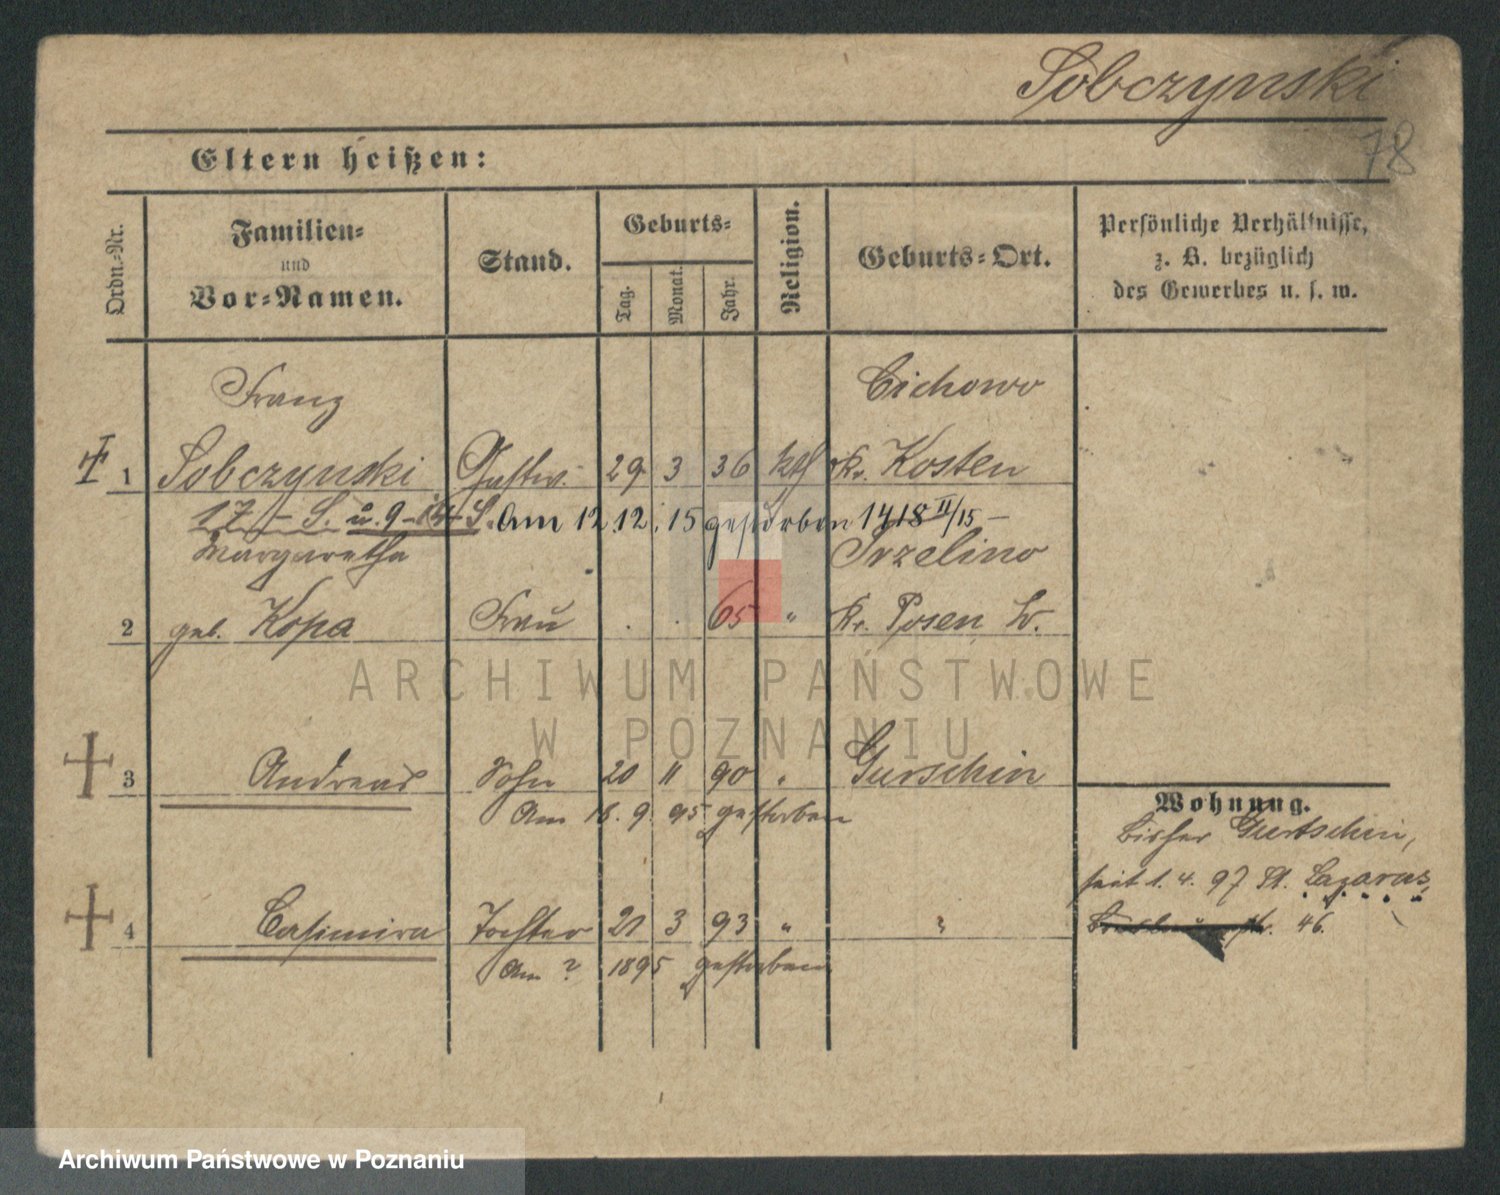 Sobczynski
78
Eltern heißen:
Ordn.-Nr.
Familien-
und
Vor-Namen.
Stand.
Geburts-
Tag.
Monat.
Jahr.
Religion.
Geburts-Ort.
Persönliche Verhältnisse,
z. B. bezüglich
des Gewerbes u. s. w.
Franz Cichowo
1 Sobczynski Gastw. 29 3 36 kth Kr. Kosten
17 - S. u. 9 - S. Am 12 12. 15 gestorben 1418 II/15 -
Margaretha Srzelino
2 geb. Kopa Frau . . 65 " Kr. Posen W.
3 Andreas Sohn 20 11 90 " Gurschin
Am 18. 9. 95 gestorben
4 Casimira Tochter 21 3 93 " "
Am ? 1895 gestorben
Wohnung.
bisher Gurtschin,
seit 1. 4. 97 St. Lazarus,
46.
ARCHIWUM PAŃSTWOWE
W POZNANIU
Archiwum Państwowe w Poznaniu